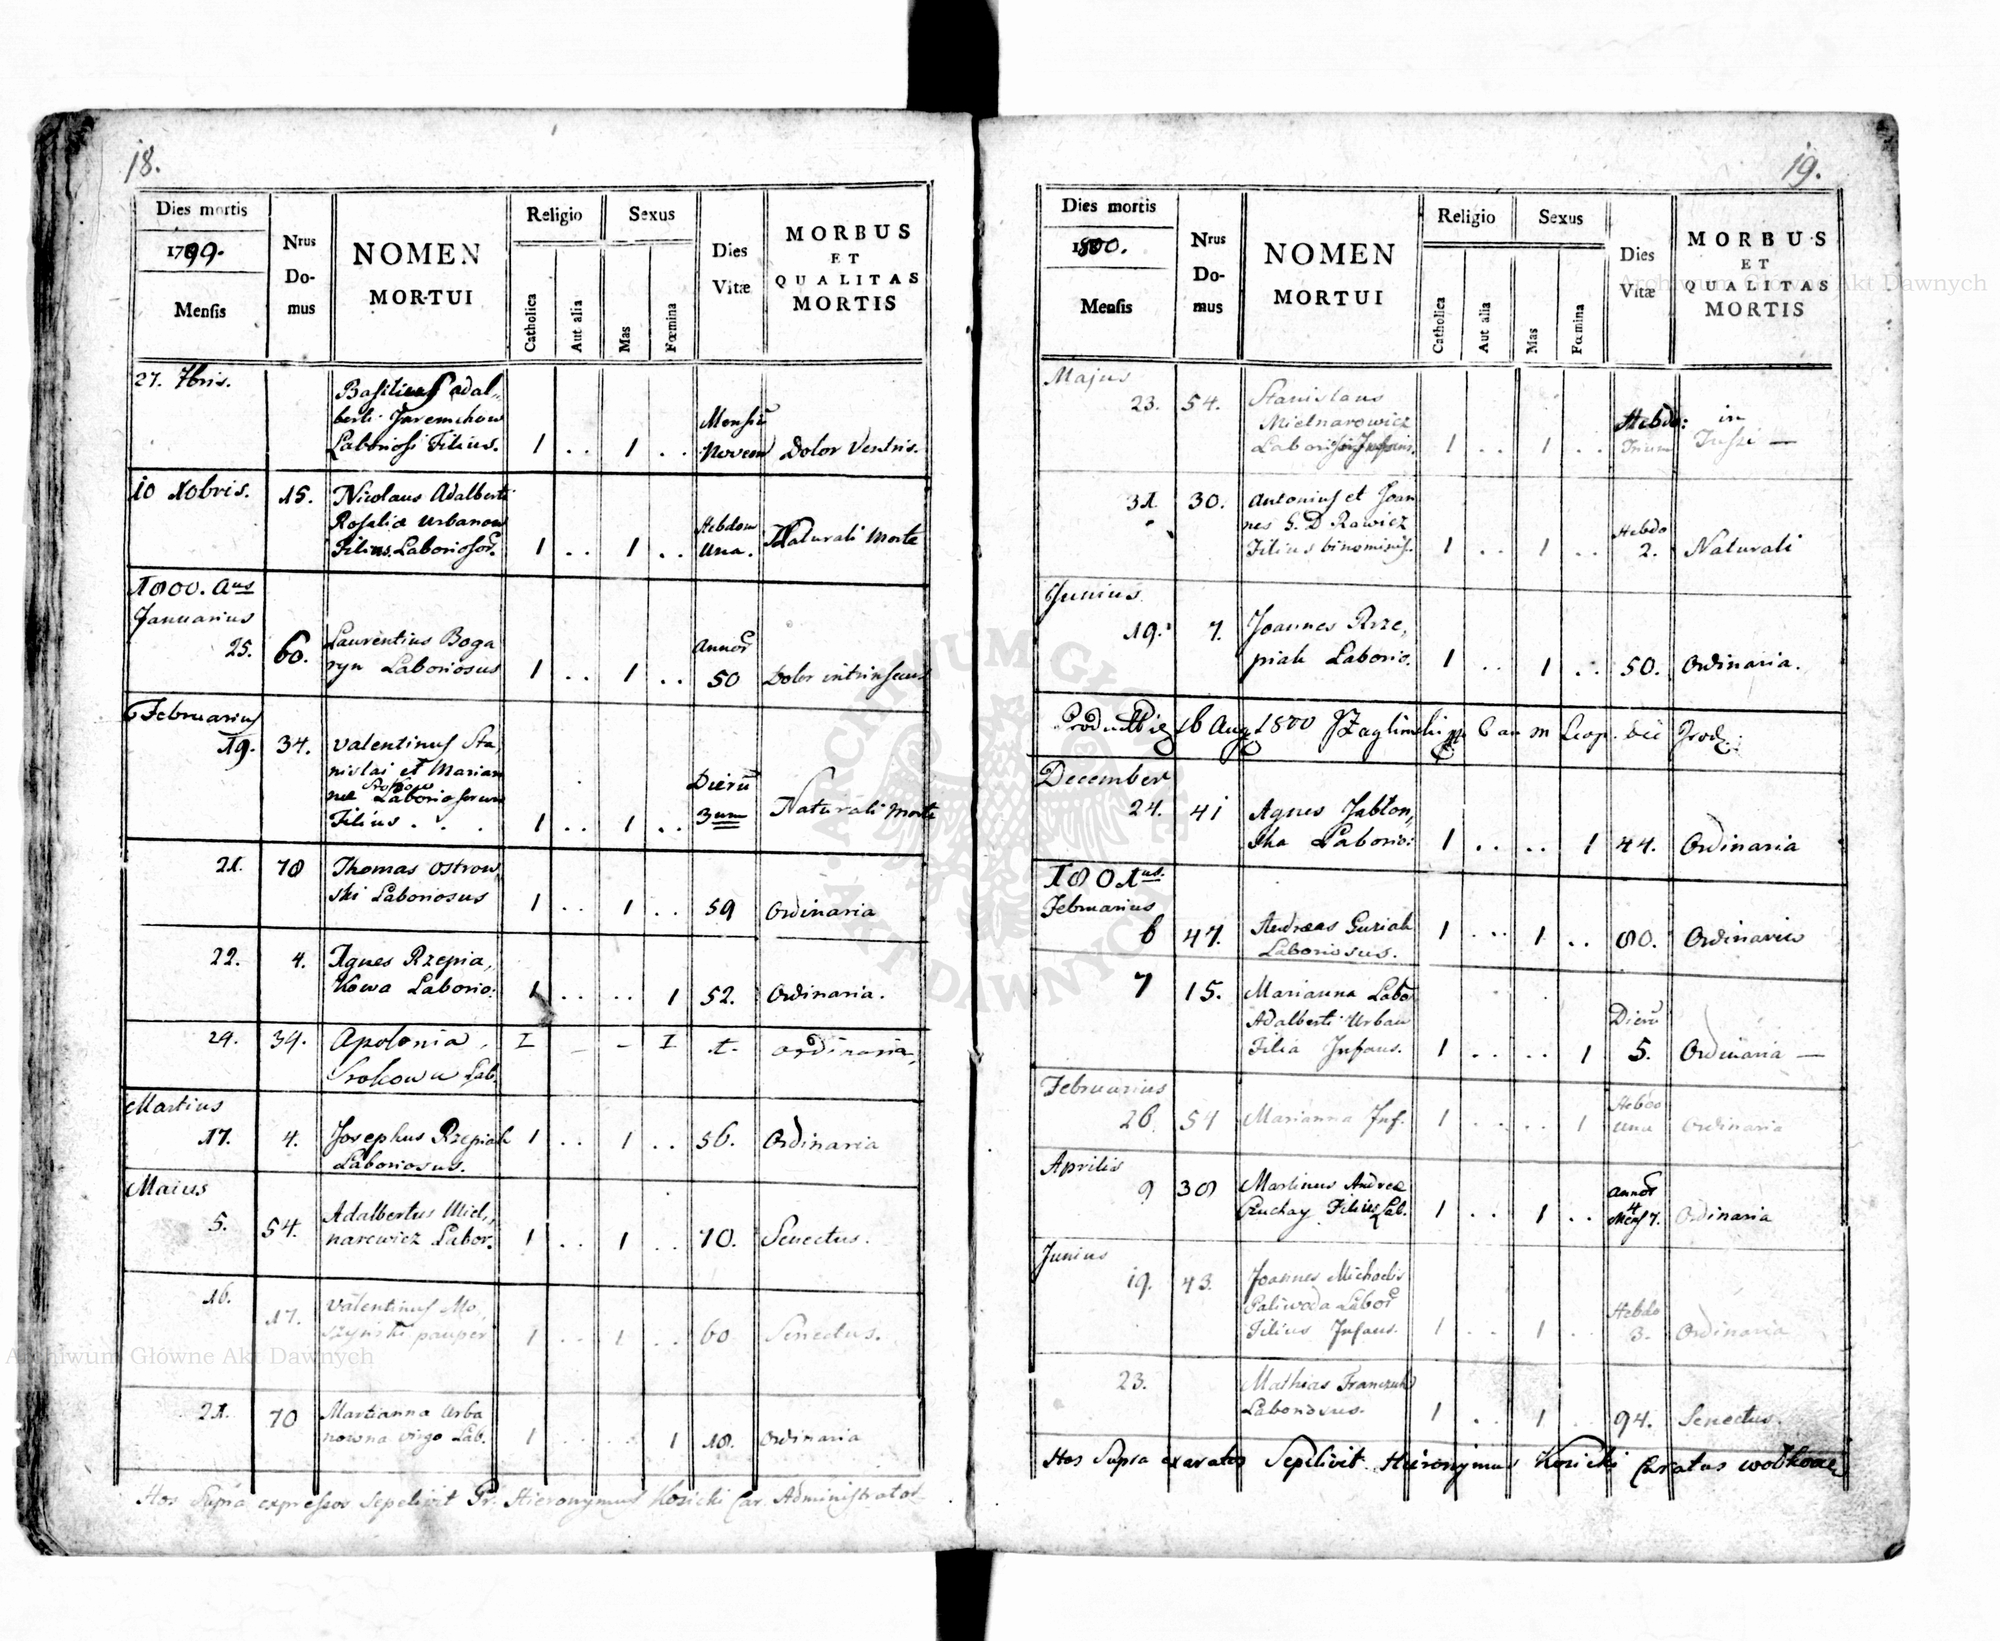 18.
Dies mortis
1799.
Mensis
Nrus Domus
NOMEN
MORTUI
Religio
Catholica
Aut alia
Sexus
Mas
Fœmina
Dies
Vitæ
MORBUS
ET
QUALITAS
MORTIS
27. 7bris.
Basilius Adal„
berti Jaremchow
Laboriosi Filius. 1 . . 1 . . Mensiũ Novem Dolor Ventris.
10 Xobris. 15. Nicolaus Adalberti
Rosaliæ Urbanow
Filius Laboriosor. 1 . . 1 . . Hebdom Una. Naturali Morte
1800. Aus
Januarius
25. 60. Laurentius Boga
ryn Laboriosus 1 . . 1 . . Annor 50 Dolor intrinsecus
Februarius
19. 34. Valentinus Sta„
nislai et Marian
næ Laboriosorum
Filius . . . 1 . . 1 . . Dierũ 3um Naturali Morte
21. 78 Thomas Ostrow„
ski Laboriosus 1 . . 1 . . 59 Ordinaria
22. 4. Agnes Rzepia„
kowa Laborio: 1 . . . . 1 52. Ordinaria.
24. 39. Apolonia I – – I ordinaria
Srokowa Lab.
Martius
17. 4. Josephus Rzepiak 1 . . 1 . . 56. Ordinaria
Laboriosus.
Maius
5. 54. Adalbertus Miel„
narowicz Labor. 1 . . 1 . . 70. Senectus.
16. 17. Valentinus Mo„
szynski pauper 1 . . 1 . . 60 Senectus.
21. 70 Marianna Urba
nowna virgo Lab. 1 . . . . 1 18. Ordinaria
Hos Supra expressos Sepelivit Pr. Hieronymus Kosicki Cur. Administrator
19.
Dies mortis
1800.
Mensis
Nrus Domus
NOMEN
MORTUI
Religio
Catholica
Aut alia
Sexus
Mas
Fœmina
Dies
Vitæ
MORBUS
ET
QUALITAS
MORTIS
Majus
23. 54. Stanislaus
Mielnarowicz
Laboriosi 1 . . 1 . . Hebdo: Trium in Tussi —
31. 30. Antonius et Joan
nes G. D Rawicz
Filius binominis. 1 . . 1 . . Hebdo 2. Naturali
Junius
19. 7. Joannes Rze„
piak Laborio. 1 . . 1 . . 50. Ordinaria.
16 Aug 1800
December
24. 41 Agnes Jabłon„
ska Laborio: 1 . . . . 1 44. Ordinaria
1801us.
Februarius
6 47. Andreas Guziak 1 . . 1 . . 80. Ordinaria
Laboriosus.
7 15. Marianna Labor
Adalberti Urban
Filia Infans. 1 . . . . 1 Dierũ 5. Ordinaria —
Februarius
26. 54 Marianna Inf. 1 . . . . 1 Hebdo una Ordinaria
Aprilis
9 38 Martinus Andreæ
Filius Lab. 1 . . 1 . . Annor 4 Mens 7. Ordinaria
Junius
19. 43. Joannes Michaelis
Paliwoda Labor
Filius Infans. 1 . . 1 . . Hebdo 3. Ordinaria
23. Mathias Franczuk
Laboriosus. 1 . . 1 . . 94. Senectus.
Hos Supra exaratos Sepelivit Hieronymus Kosicki Curatus
Archiwum Główne Akt Dawnych
Archiwum Główne Akt Dawnych
ARCHIWUM GŁÓWNE AKT DAWNYCH